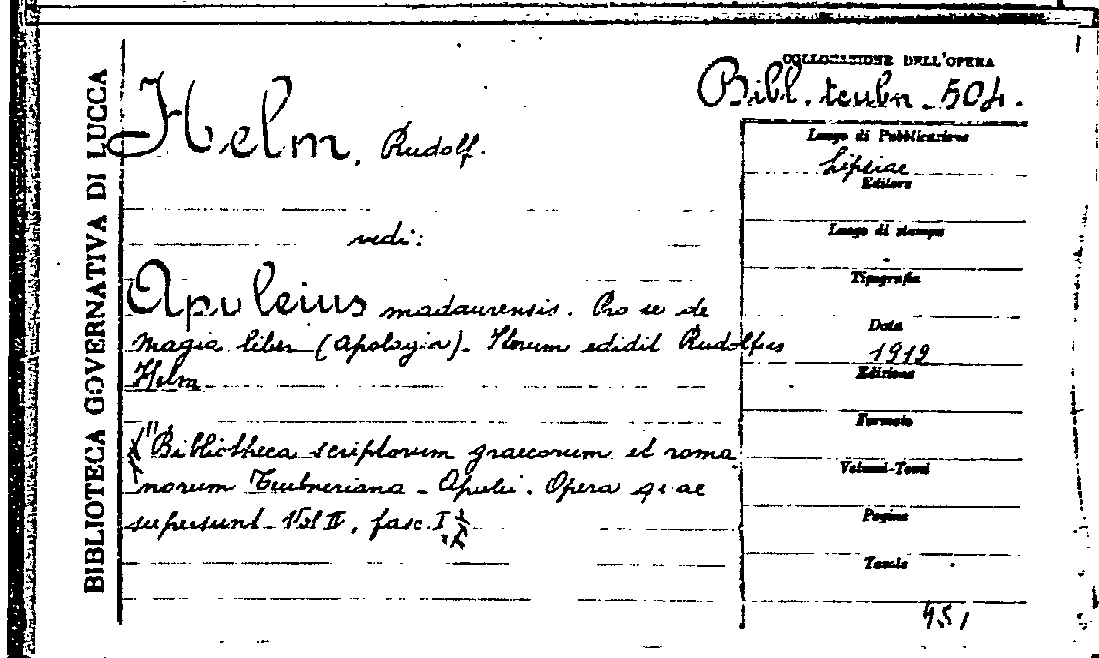 BIBLIOTECA GOVERNATIVA DI LUCCA
COLLOCAZIONE DELL'OPERA
Bibl. teubn. 504.
Helm, Rudolf.
vedi:
Apuleius madaurensis. Pro se de
magia liber (apologia). Iterum edidit Rudolfus
Helm
("Bibliotheca scriptorum graecorum et roma
norum Teubneriana - Apulei. Opera quae
supersunt. Vol II, fasc. I
Luogo di Pubblicazione
Lipsiae
Editore
Luogo di stampa
Tipografia
Data
1912
Edizione
Formato
Volumi-Tomi
Pagine
Tavole